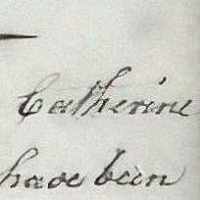 Catherine
have been